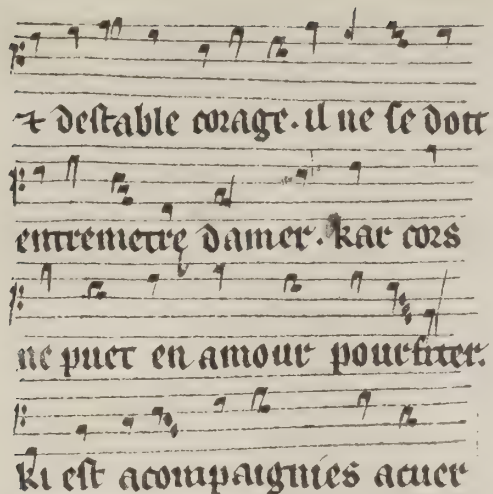 ⁊ destable corage. il ne se doit
entremetre damer. kar cors
ne puet en amour pourfiter.
ki est acompaignies acuer